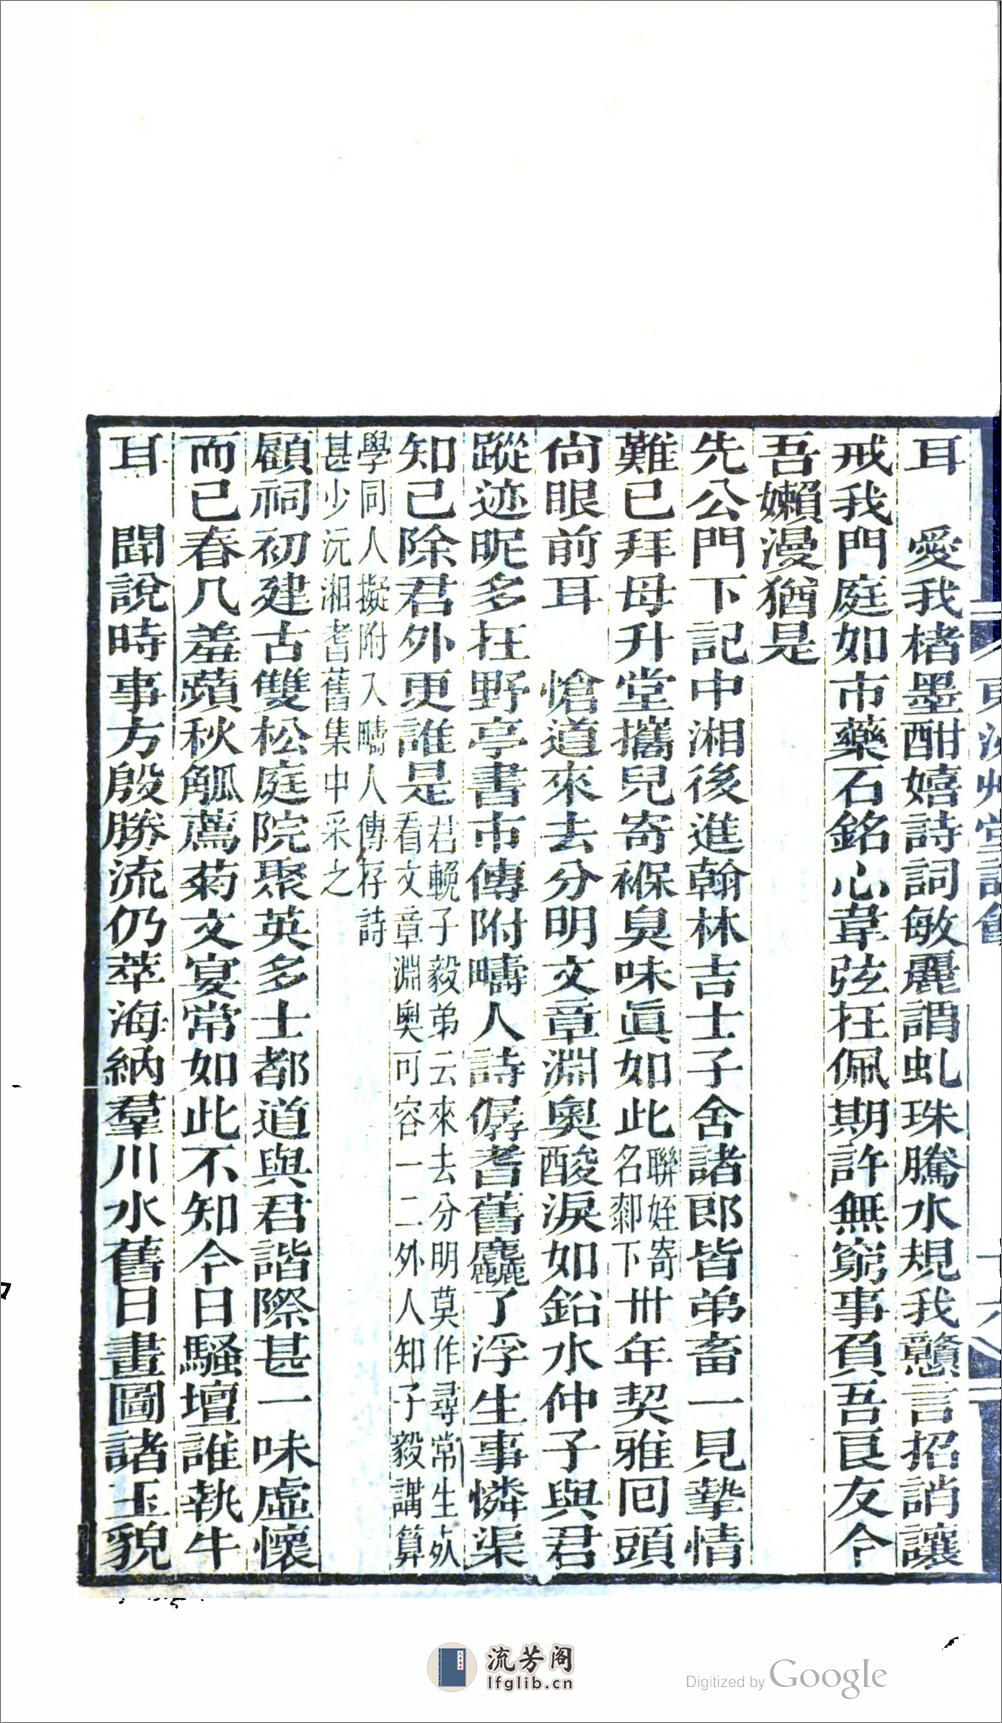 耳　愛我楮墨酣嬉詩詞敏麗謂虬珠騰水規我戇言招誚讓
戒我門庭如市藥石銘心韋弦在佩期許無窮事負吾良友今
吾嬾漫猶是
先公門下記中湘後進翰林吉士子舍諸郎皆弟畜一見摯情
難已拜母升堂攜兒寄褓臭味眞如此聯姪寄名郗下卅年契雅囘頭
尙眼前耳　愴道來去分明文章淵奧酸淚如鉛水仲子與君
蹤迹昵多在野亭書市傳附疇人詩僝耆舊麤了浮生事憐渠
知己除君外更誰是君輓子毅弟云來去分明莫作尋常生死看文章淵奧可容一二外人知子毅謂算
學同人擬附入疇人傳存詩
甚少沅湘耆舊集中采之
顧祠初建古雙松庭院聚英多士都道與君諧際甚一味虛懷
而已春几羞蘋秋觚薦菊文宴常如此不知今日騷壇誰執牛
耳　聞說時事方殷勝流仍萃海納羣川水舊日畫圖諸玉貌
流芳阁
lfglib.cn
Digitized by Google